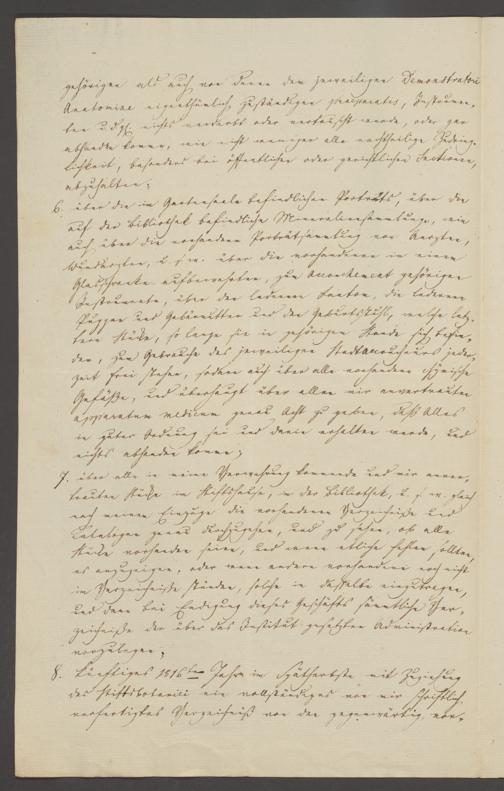 gehörigen als auch von denen dem jeweiligen Demonstratori
Anatomiae eigenthümlich zuständigen Praeparatis, Instrumen-
ten u. dgl. nichts verderbt oder vertauscht werde, oder gar
abhanden komme, wie nicht weniger alle nachtheilige Zudring-
lichkeit, besonders bei öffentlichen oder gerichtlichen Sectionen,
abzuhalten;
6. über die im Gartensaale befindlichen Porträts, über die
auf der Bibliothek befindliche Mineraliensammlung, wie
auch über die vorhandene Porträtsammlung von Aerzten,
Wundärzten, u. s. w. über die vorhandenen in einem
Glasschranke aufbewahrten, zum Accouchement gehörigen
Instrumente, über den ledernen, die ledernen
Puppen und Gebärmutter und den Geburtsstuhl, welche letz-
tere Stücke, so lange sie in gehörigem Stande sich befin-
den, zum Gebrauche des jeweiligen Stadtaccoucheurs jeder-
zeit frei stehen, sodann auch über alle vorhandene chymische
Gefäße, und überhaupt über allen mir anvertrauten
apparatum medicum genau Acht zu geben, daß Alles
in guter Ordnung sei und darin erhalten werde, und
nichts abhanden komme;
7. über alle in meine Verwahrung kommende und mir anver-
trauten Stücke im Stiftshause, in der Bibliothek, u. s. w. gleich
nach meinem Einzuge die vorhandenen Verzeichniße und
Catalogen genau durchzugehen, und zu sehen, ob alle
Stücke vorhanden seien, und wenn etliche fehlen sollten,
es anzuzeigen, oder wenn andere vorhanden noch nicht
im Verzeichniße stünden, solche in dasselbe einzutragen,
und dann bei Endigung dieses Geschäfts sämtliche Ver-
zeichniße der über das Institut gesetzten Administration
vorzulegen;
8. Künftiges 1816ten Jahr im Spätherbste mit Zuziehung
des Stiftsbotanici ein vollständiges von mir schriftlich
verfertigtes Verzeichniß von den gegenwärtig vor-